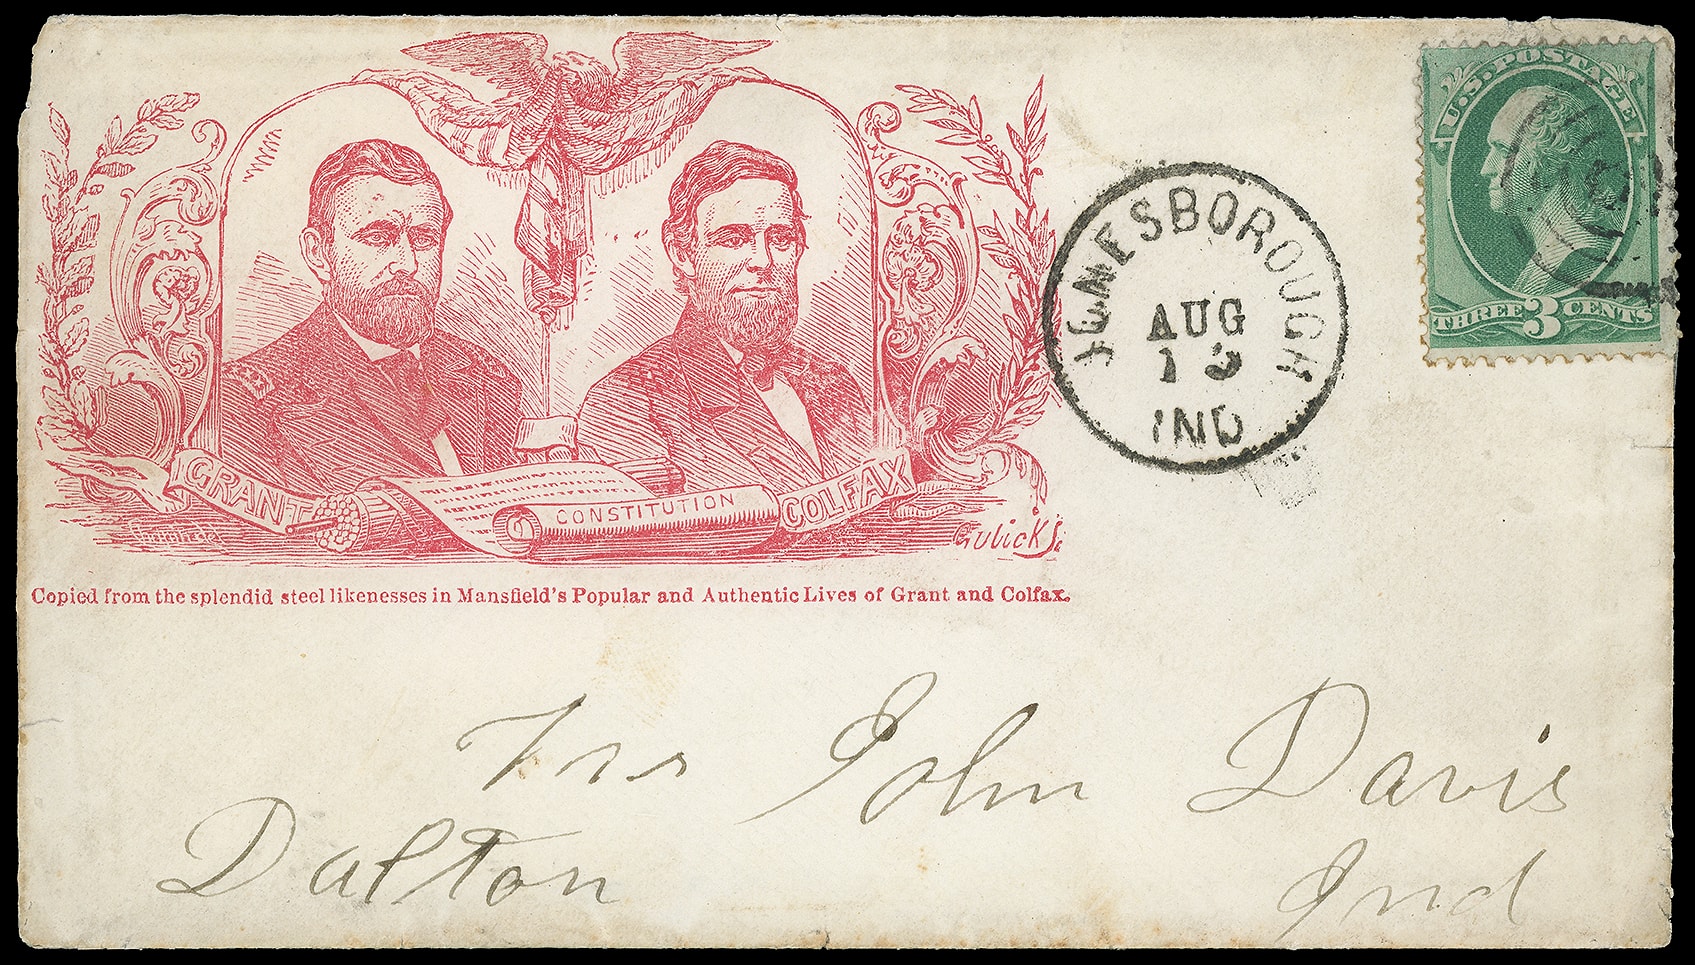 GRANT
CONSTITUTION
COLFAX
Gulick Sc
Copied from the splendid steel likenesses in Mansfield's Popular and Authentic Lives of Grant and Colfax.
JONESBOROUGH
AUG
13
IND
U.S. POSTAGE
THREE 3 CENTS
Mrs John Davis
Dalton Ind